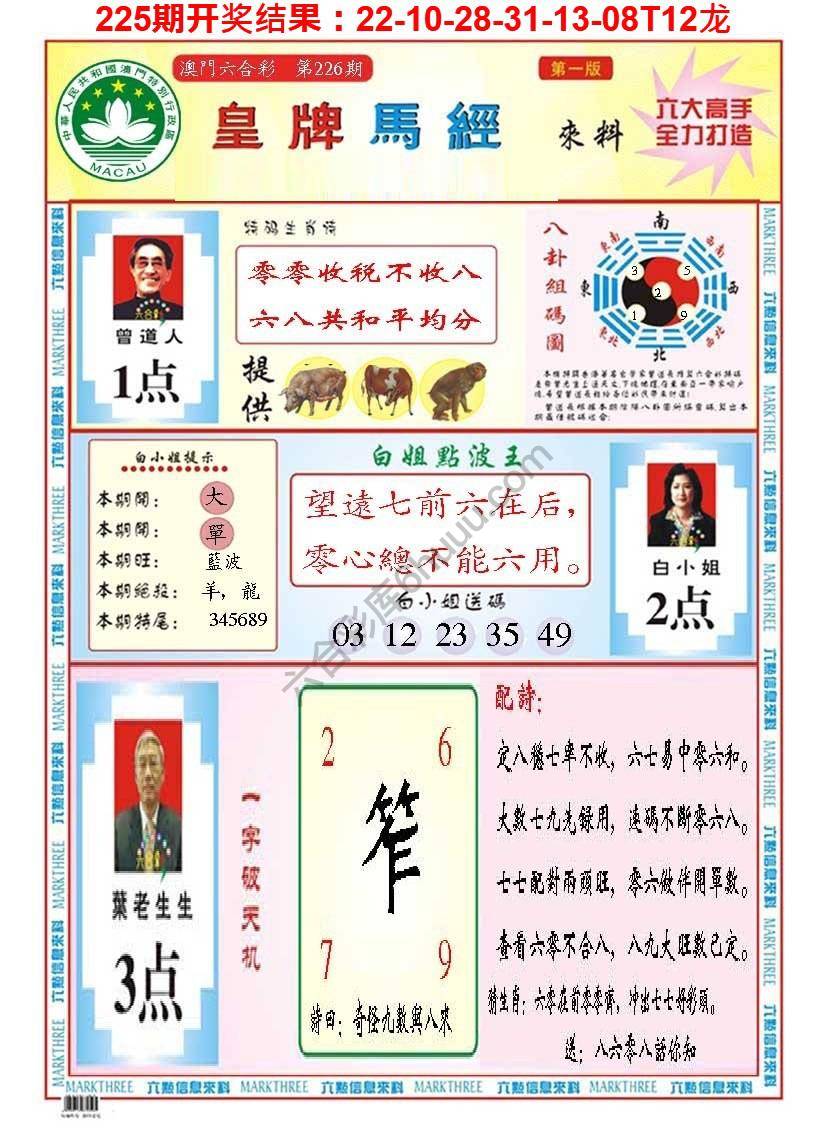 225期开奖结果：22-10-28-31-13-08T12龙
澳門六合彩　第226期
第一版
中華人民共和國澳門特別行政區
MACAU
皇牌馬經
來料
六大高手
全力打造
曾道人
1点
特码生肖诗
零零收税不收八
六八共和平均分
提供
八卦組碼圖
南
東南
西南
東
西
東北
西北
北
3
5
2
1
9
白小姐提示
本期開：大
本期開：單
本期旺：藍波
本期絕投：羊，龍
本期特尾：345689
白姐點波王
望遠七前六在后，
零心總不能六用。
白小姐送碼
03 12 23 35 49
白小姐
2点
葉老生生
3点
一字破天机
2 6
笮
7 9
詩曰：奇怪九數與八來
配詩：
定八穩七率不收，六七易中零六和。
大數七九先録用，连碼不斷零六八。
七七配對兩頭旺，零六做伴開單數。
查看六零不合八，八九大旺數已定。
猜生肖：六零在前零零齊，冲出七七好彩頭。
送：八六零八話你知
六點信息來料
MARKTHREE
六合彩库6htuu.com
MARKTHREE 六點信息來料 MARKTHREE 六點信息來料 MARKTHREE 六點信息來料 MARKTHREE 六點信息來料